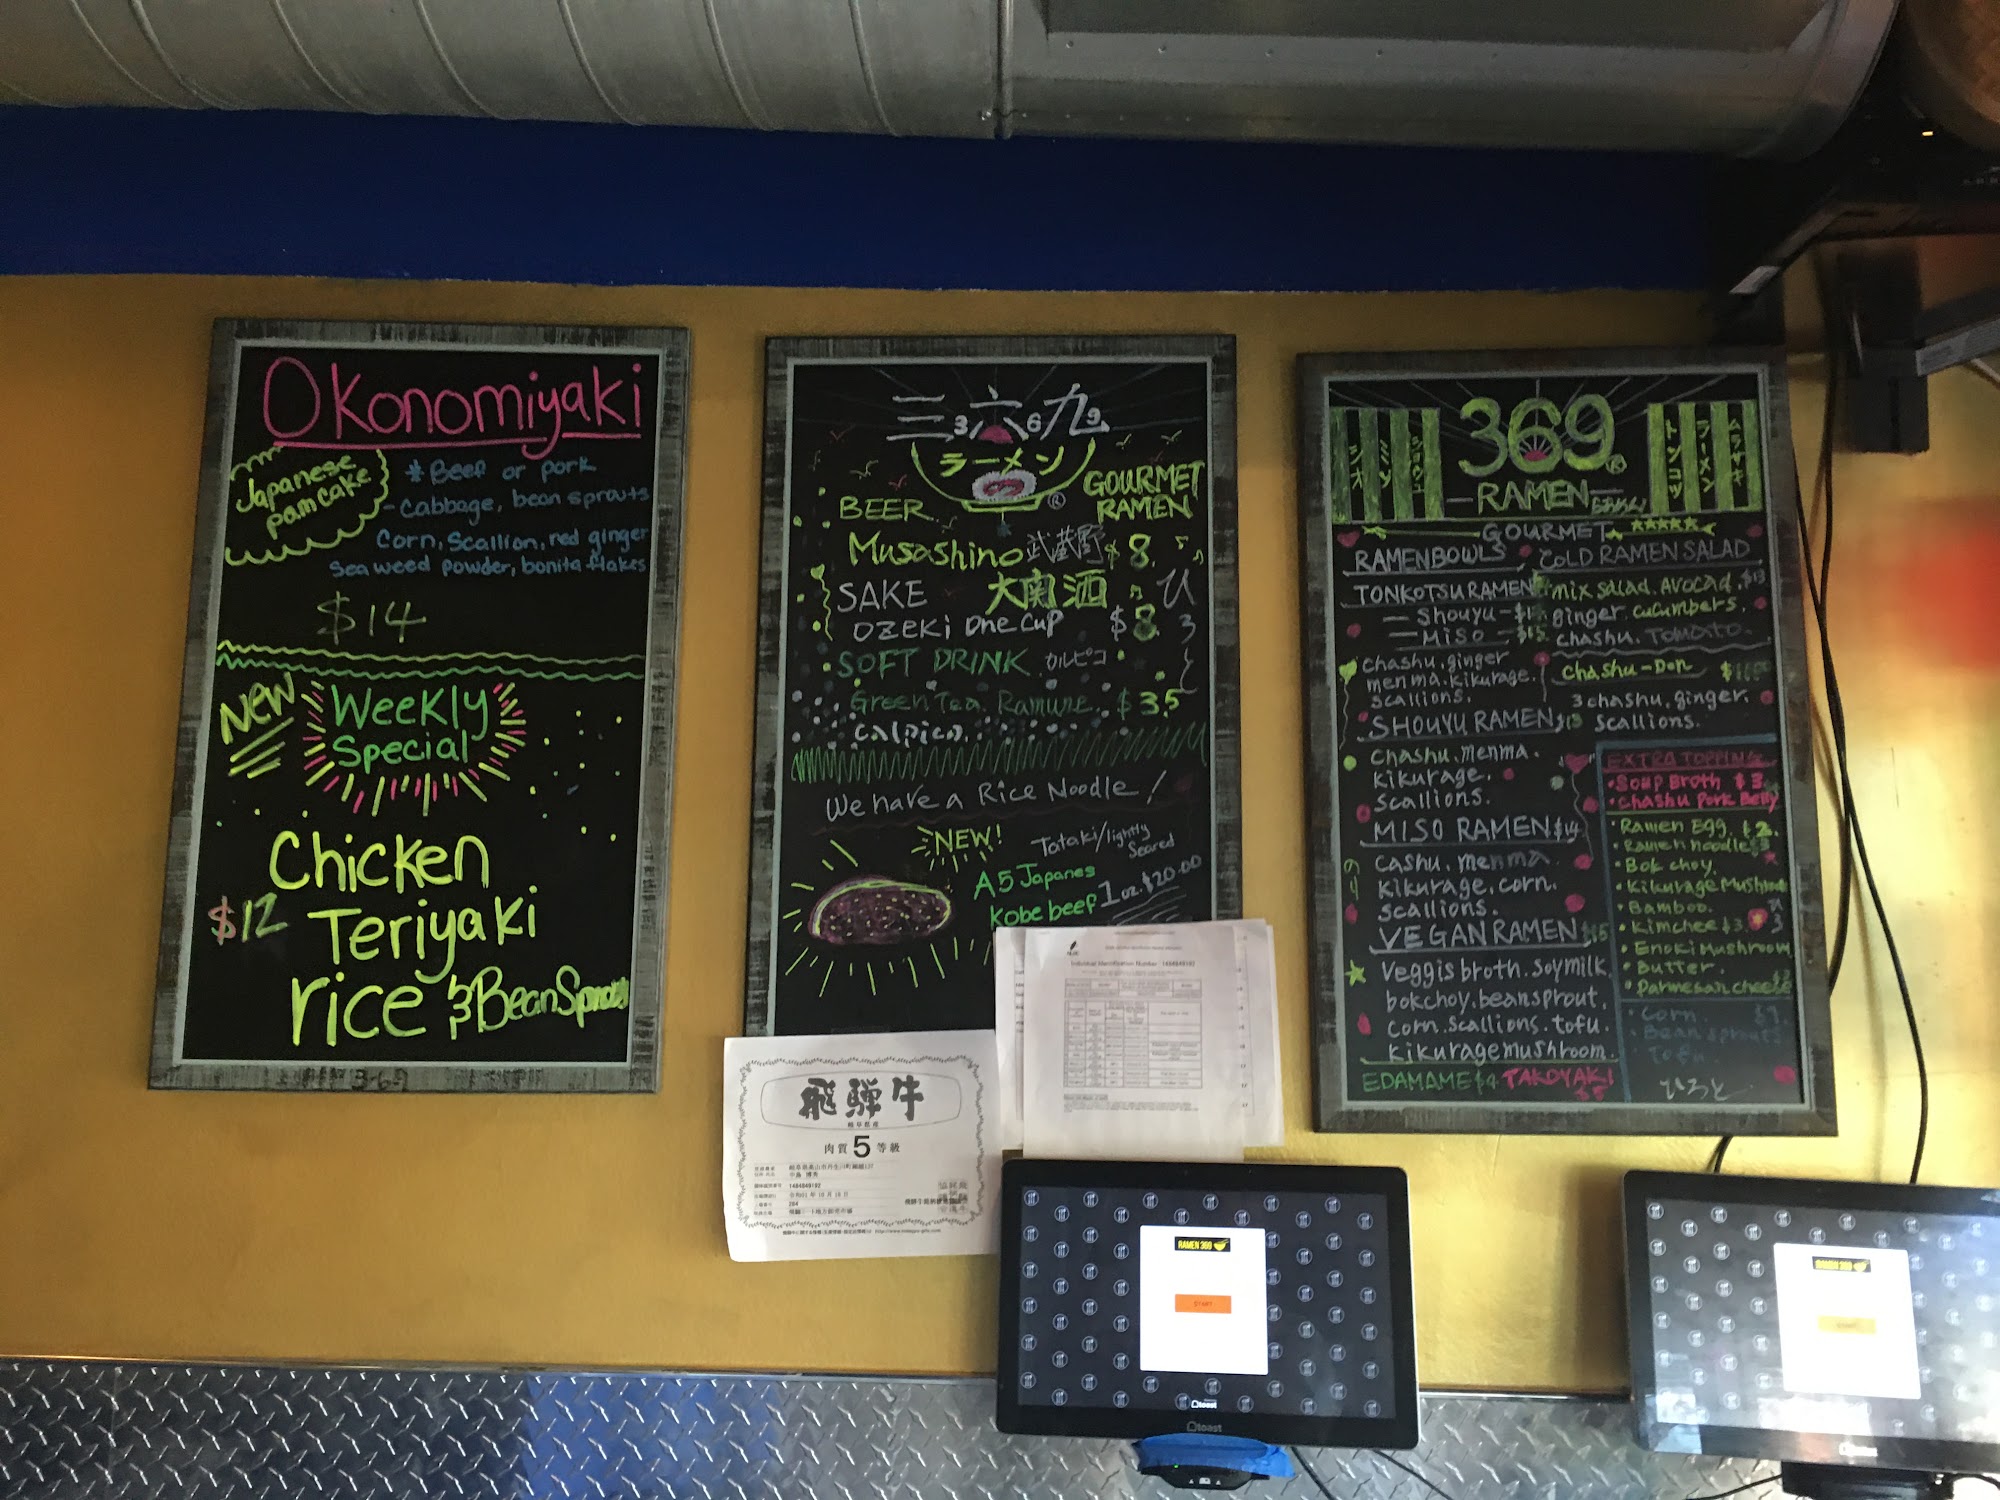 Okonomiyaki
Japanese
pamcake
* Beef or pork
- Cabbage, bean sprouts
Corn, Scallion, red ginger
Sea weed powder, bonita flakes
$14
NEW
Weekly
Special
Chicken
$12 Teriyaki
rice & Bean Sprouts
3.69
三3六6九9
ラーメン
®
GOURMET
RAMEN
BEER
Musashino 武蔵野 $8.
SAKE
ozeki one cup $8.
SOFT DRINK カルピコ
Green Tea. Ramune. $3.5
calpico.
ひろと
We have a Rice Noodle!
NEW!
Tataki/lightly
Seared
A5 Japanes
Kobe beef 1oz. $20.00
飛騨牛
岐阜県産
肉質5等級
1484849192
Individual Identification Number 1484849192
シオ
ミソ
ショウユ
369®
-RAMEN-
トンコツ
ラーメン
ムラサキ
GOURMET
RAMEN BOWLS
TONKOTSU RAMEN
- Shouyu -
- Miso -
chashu. ginger
menma. kikurage.
scallions.
SHOUYU RAMEN
chashu. menma.
kikurage.
scallions.
MISO RAMEN $14
cashu. menma.
kikurage. corn.
scallions.
VEGAN RAMEN $15
Veggis broth. soymilk.
bokchoy. beansprout.
corn. scallions. tofu.
kikurage mushroom.
EDAMAME $4 TAKOYAKI
$5
COLD RAMEN SALAD
mix salad. Avocad. $13
ginger. cucumbers.
chashu. TOMATO.
Chashu-Don
3 chashu. ginger.
scallions.
EXTRA TOPPING
• Soup Broth $3
• Chashu Pork Belly
• Ramen Egg. $2.
• Ramen noodle $3
• Bok choy.
• Kikurage Mushroom
• Bamboo.
• Kimchee $3.
• Enoki Mushroom
• Butter.
• Parmesan cheese
• Corn.
• Bean sprouts
• Tofu
ひろと
RAMEN 369
START
toast
toast
RAMEN 369
START